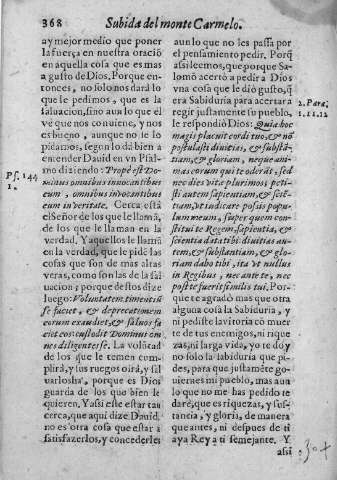 368
Subida del monte Carmelo.
ay mejor medio que poner
la fuerça en nuestra oracio
en aquella cosa que es mas
a gusto de Dios. Porque en-
tonces, no solo nos dará lo
que le pedimos, que es la
saluacion, sino aun lo que el
ve que nos conuiene, y nos
es bueno, aunque no se lo
pidamos, segun lo dà bien a
entender Dauid en vn Psal-
mo diziendo: Propè est Do-
minus omnibus inuocantibus
eum, omnibus inuocantibus
eum in veritate. Cerca està
el Señor de los que le llamã,
de los que le llaman en la
verdad. Y aquellos le llamã
en la verdad, que le pidẽ las
cosas que son de mas altas
veras, como son las de la sa-
luacion; porque destos dize
luego: Voluntatem timentiũ
se faciet, & deprecationem
eorum exaudiet, & saluos fa-
ciet eos: custodit Dominus om-
nes diligentes se. La volũtad
de los que le temen cum-
plirà, y sus ruegos oirà, y sal
uarlosha, porque es Dios
guarda de los que bien le
quieren. Y assi este estar tan
cerca, que aqui dize Dauid,
no es otra cosa que estar a
satisfazerlos, y concederles
Ps. 144
1.
aun lo que no les passa por
el pensamiento pedir. Porq̃
assi leemos, que porque Sa-
lomõ acertò a pedir a Dios
vna cosa que le diò gusto, q̃
era Sabiduria para acertar a
regir justamente su pueblo,
le respondiò Dios: Quia hoc
magis placuit cordi tuo, & nõ
postulasti diuitias, & substã-
tiam, & gloriam, neque ani-
mas eorum qui te oderãt, sed
nec dies vitæ plurimos peti-
sti autem sapientiam, & sciẽ-
tiam, vt iudicare possis popu-
lum meum, super quem con-
stitui te Regem, sapientia, &
scientia data tibi: diuitias au-
tem, & substantiam, & glo-
riam dabo tibi, ita vt nullus
in Regibus, nec ante te, nec
post te fuerit similis tui. Por-
que te agradò mas que otra
alguna cosa la Sabiduria, y
ni pediste la vitoria cõ muer
te de tus enemigos, ni rique
zas, ni larga vida, yo te doy
no solo la sabiduria que pi-
des, para que justamẽte go-
uiernes mi pueblo, mas aun
lo que no me has pedido te
darè, que es riquezas, y sus-
tancia, y gloria, de manera
que antes, ni despues de ti
aya Rey a ti semejante. Y
assi
2. Para.
1. 11. 12